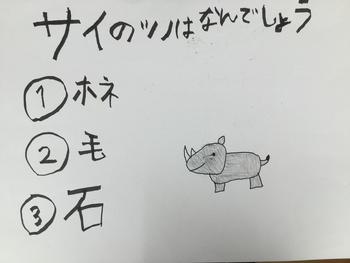 サイのツノはなんでしょう
①ホネ
②毛
③石